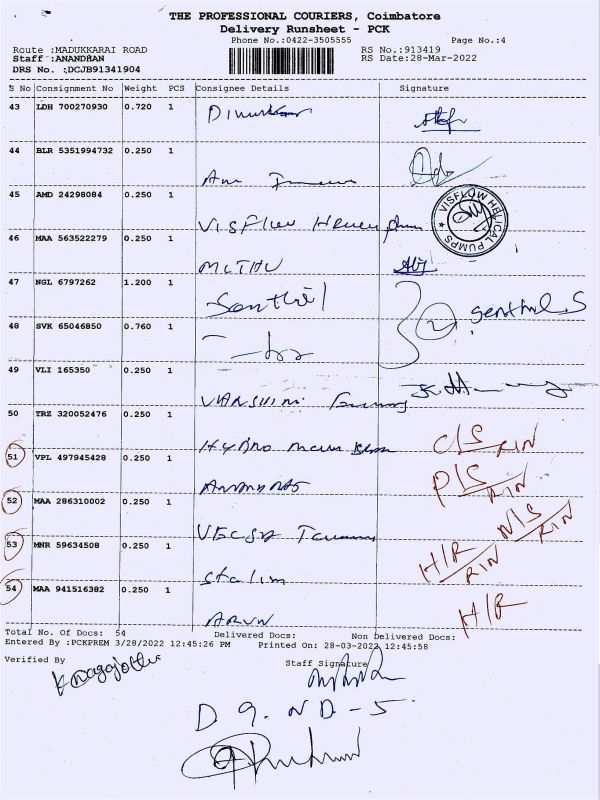 THE PROFESSIONAL COURIERS, Coimbatore
Delivery Runsheet - PCK
Phone No.:0422-3505555
Page No.:4
Route :MADUKKARAI ROAD
RS No.:913419
Staff :ANANDHAN
RS Date:28-Mar-2022
DRS No. :DCJB91341904
S No Consignment No Weight PCS Consignee Details Signature
43 LDH 700270930 0.720 1
44 BLR 5351994732 0.250 1
45 AMD 24298084 0.250 1 VISFLOW
VISFLOW HELICAL PUMPS
46 MAA 563522279 0.250 1 MUTHU
47 NGL 6797262 1.200 1 Senthil Senthil S
48 SVK 65046850 0.760 1
49 VLI 165350 0.250 1
50 TRZ 320052476 0.250 1 HYDRO C/S RIN
51 VPL 497945428 0.250 1 P/S RIN
52 MAA 286310002 0.250 1 N/S RIN
53 MNR 59634508 0.250 1 Stalin H/R RIN
54 MAA 941516382 0.250 1 ARUN H/R
Total No. Of Docs: 54 Delivered Docs: Non Delivered Docs:
Entered By :PCKPREM 3/28/2022 12:45:26 PM Printed On: 28-03-2022 12:45:58
Verified By Staff Signature
D 9. ND-5